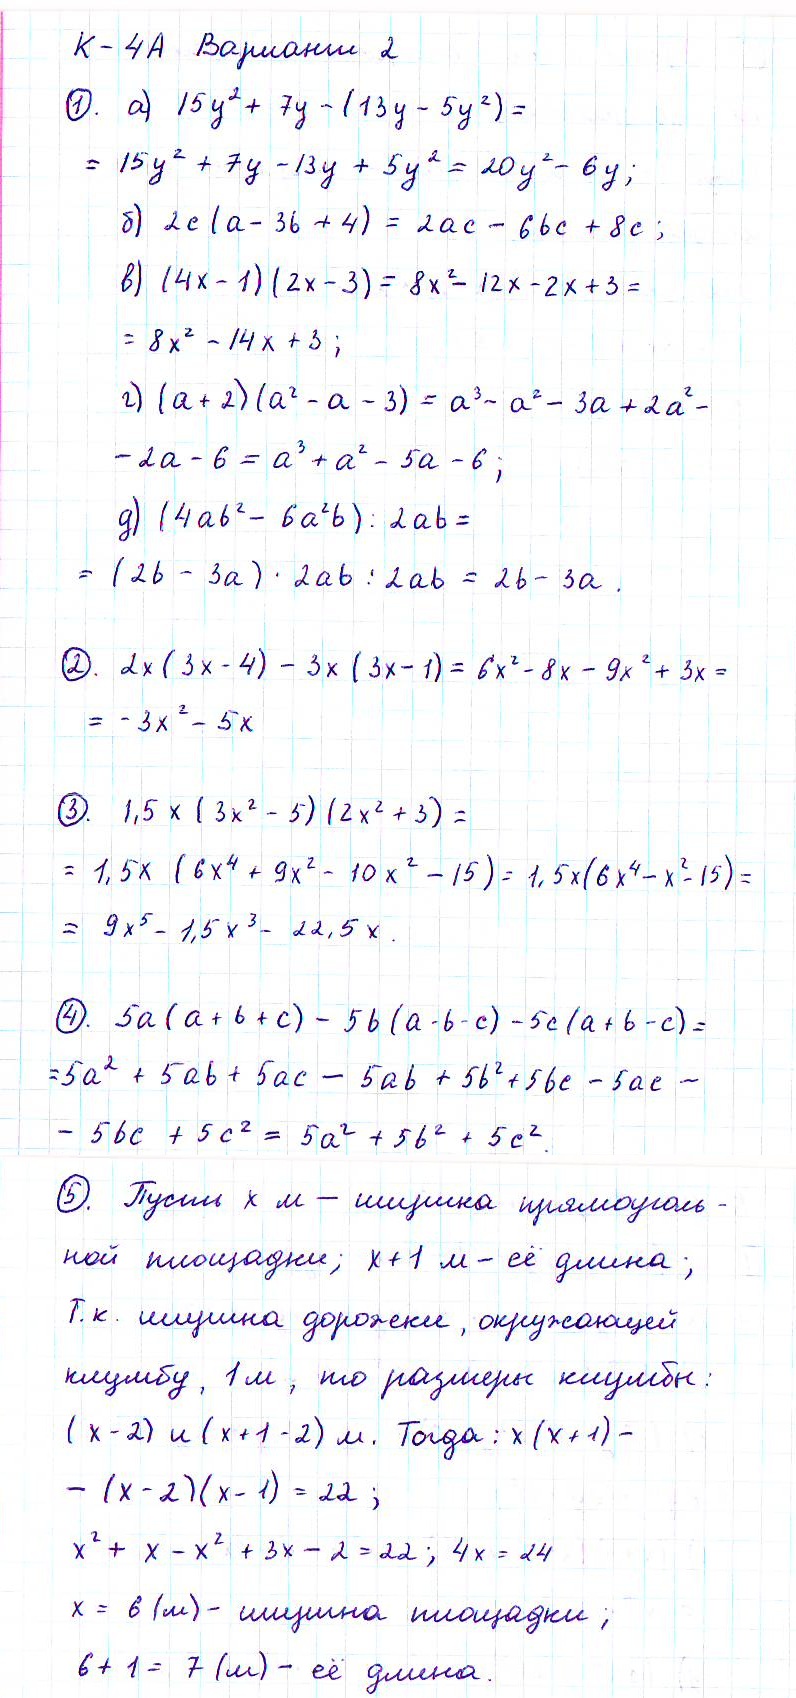 К-4А Вариант 2
①. а) 15y² + 7y - (13y - 5y²) =
= 15y² + 7y - 13y + 5y² = 20y² - 6y;
б) 2c(a - 3b + 4) = 2ac - 6bc + 8c;
в) (4x - 1)(2x - 3) = 8x² - 12x - 2x + 3 =
= 8x² - 14x + 3;
г) (a + 2)(a² - a - 3) = a³ - a² - 3a + 2a² -
- 2a - 6 = a³ + a² - 5a - 6;
д) (4ab² - 6a²b) : 2ab =
= (2b - 3a) · 2ab : 2ab = 2b - 3a.
②. 2x(3x - 4) - 3x(3x - 1) = 6x² - 8x - 9x² + 3x =
= -3x² - 5x
③. 1,5x(3x² - 5)(2x² + 3) =
= 1,5x (6x⁴ + 9x² - 10x² - 15) = 1,5x(6x⁴ - x² - 15) =
= 9x⁵ - 1,5x³ - 22,5x.
④. 5a(a + b + c) - 5b(a - b - c) - 5c(a + b - c) =
= 5a² + 5ab + 5ac - 5ab + 5b² + 5bc - 5ac -
- 5bc + 5c² = 5a² + 5b² + 5c².
⑤. Пусть x м — ширина прямоуголь-
ной площадки; x + 1 м - её длина;
Т.к. ширина дорожки, окружающей
клумбу, 1 м, то размеры клумбы:
(x - 2) и (x + 1 - 2) м. Тогда: x(x + 1) -
- (x - 2)(x - 1) = 22;
x² + x - x² + 3x - 2 = 22; 4x = 24
x = 6 (м) - ширина площадки;
6 + 1 = 7 (м) - её длина.